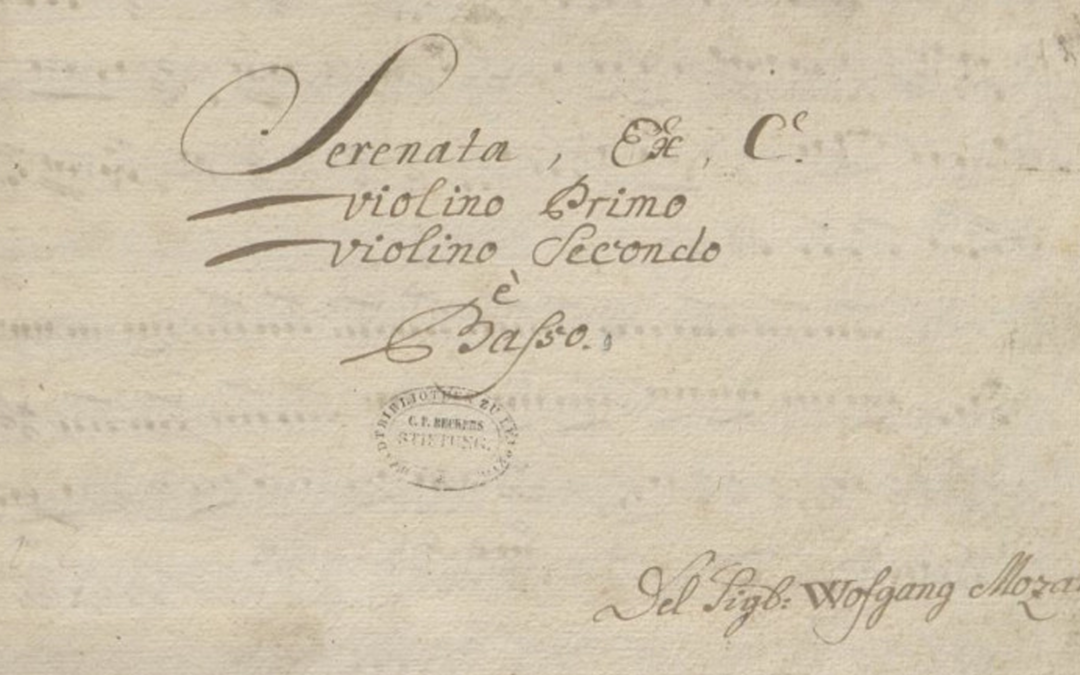 Serenata, Ex, C.
violino Primo
violino Secondo
è
Baſso.
STADTBIBLIOTHEK ZU LEIPZIG
C. F. BECKERS
STIFTUNG.
Del Sigl: Wofgang Moza